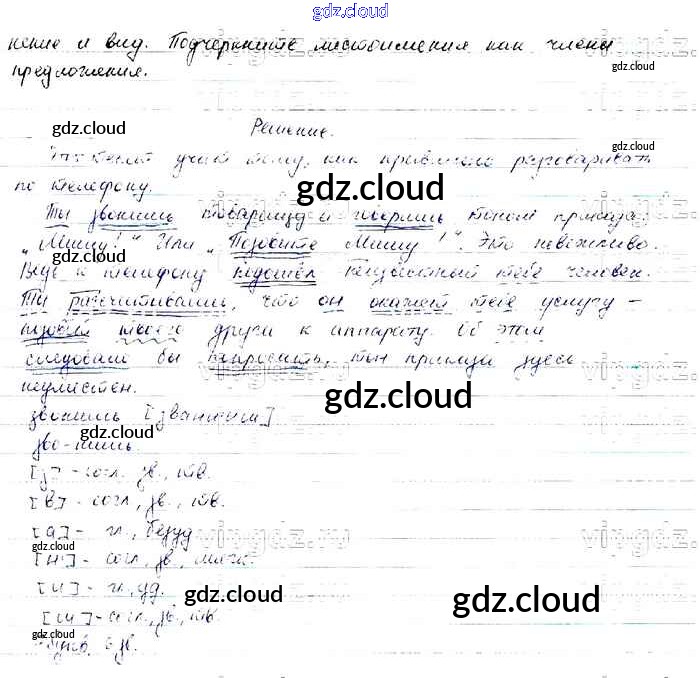 gdz.cloud
нение и вид. Подчеркните местоимения как члены
предложения.
gdz.cloud
gdz.cloud
Решение.
gdz.cloud
учит тому, как правильно разговаривать
по телефону.
gdz.cloud
Ты звонишь товарищу и говоришь тоном приказа:
"Мишу!" Или "Позовите Мишу!". Это невежливо.
gdz.cloud
Ведь к телефону подошёл неизвестный тебе человек.
Ты рассчитываешь, что он окажет тебе услугу –
позовёт твоего друга к аппарату. Об этом
следовало бы попросить, тон приказа здесь
неуместен.
gdz.cloud
gdz.cloud
звонишь [званиш]
gdz.cloud
зво-нишь.
[з] - согл., зв., тв.
[в] - согл., зв., тв.
[а] - гл., безуд.
gdz.cloud
[н'] - согл., зв., мягк.
[и] - гл., уд.
gdz.cloud
gdz.cloud
[ш] - согл., зв., тв.
gdz.cloud
букв, 6 зв.